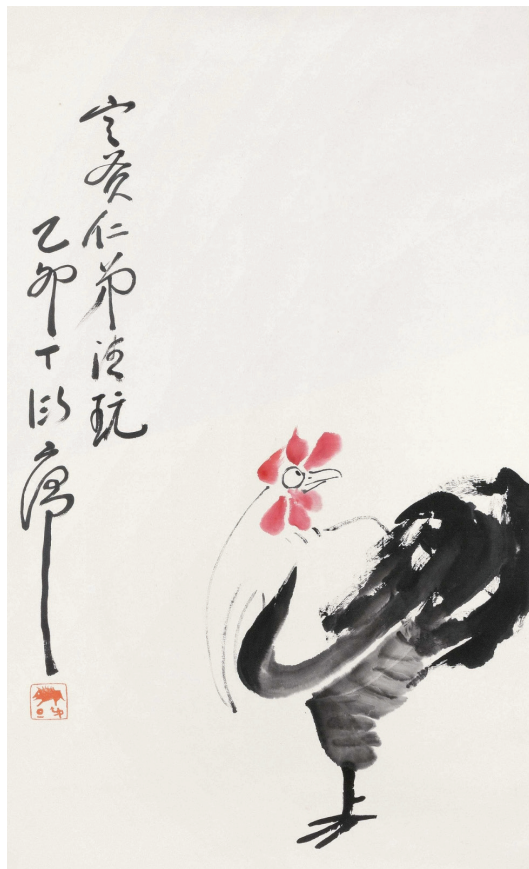 仁弟清玩
乙卯丁衍庸